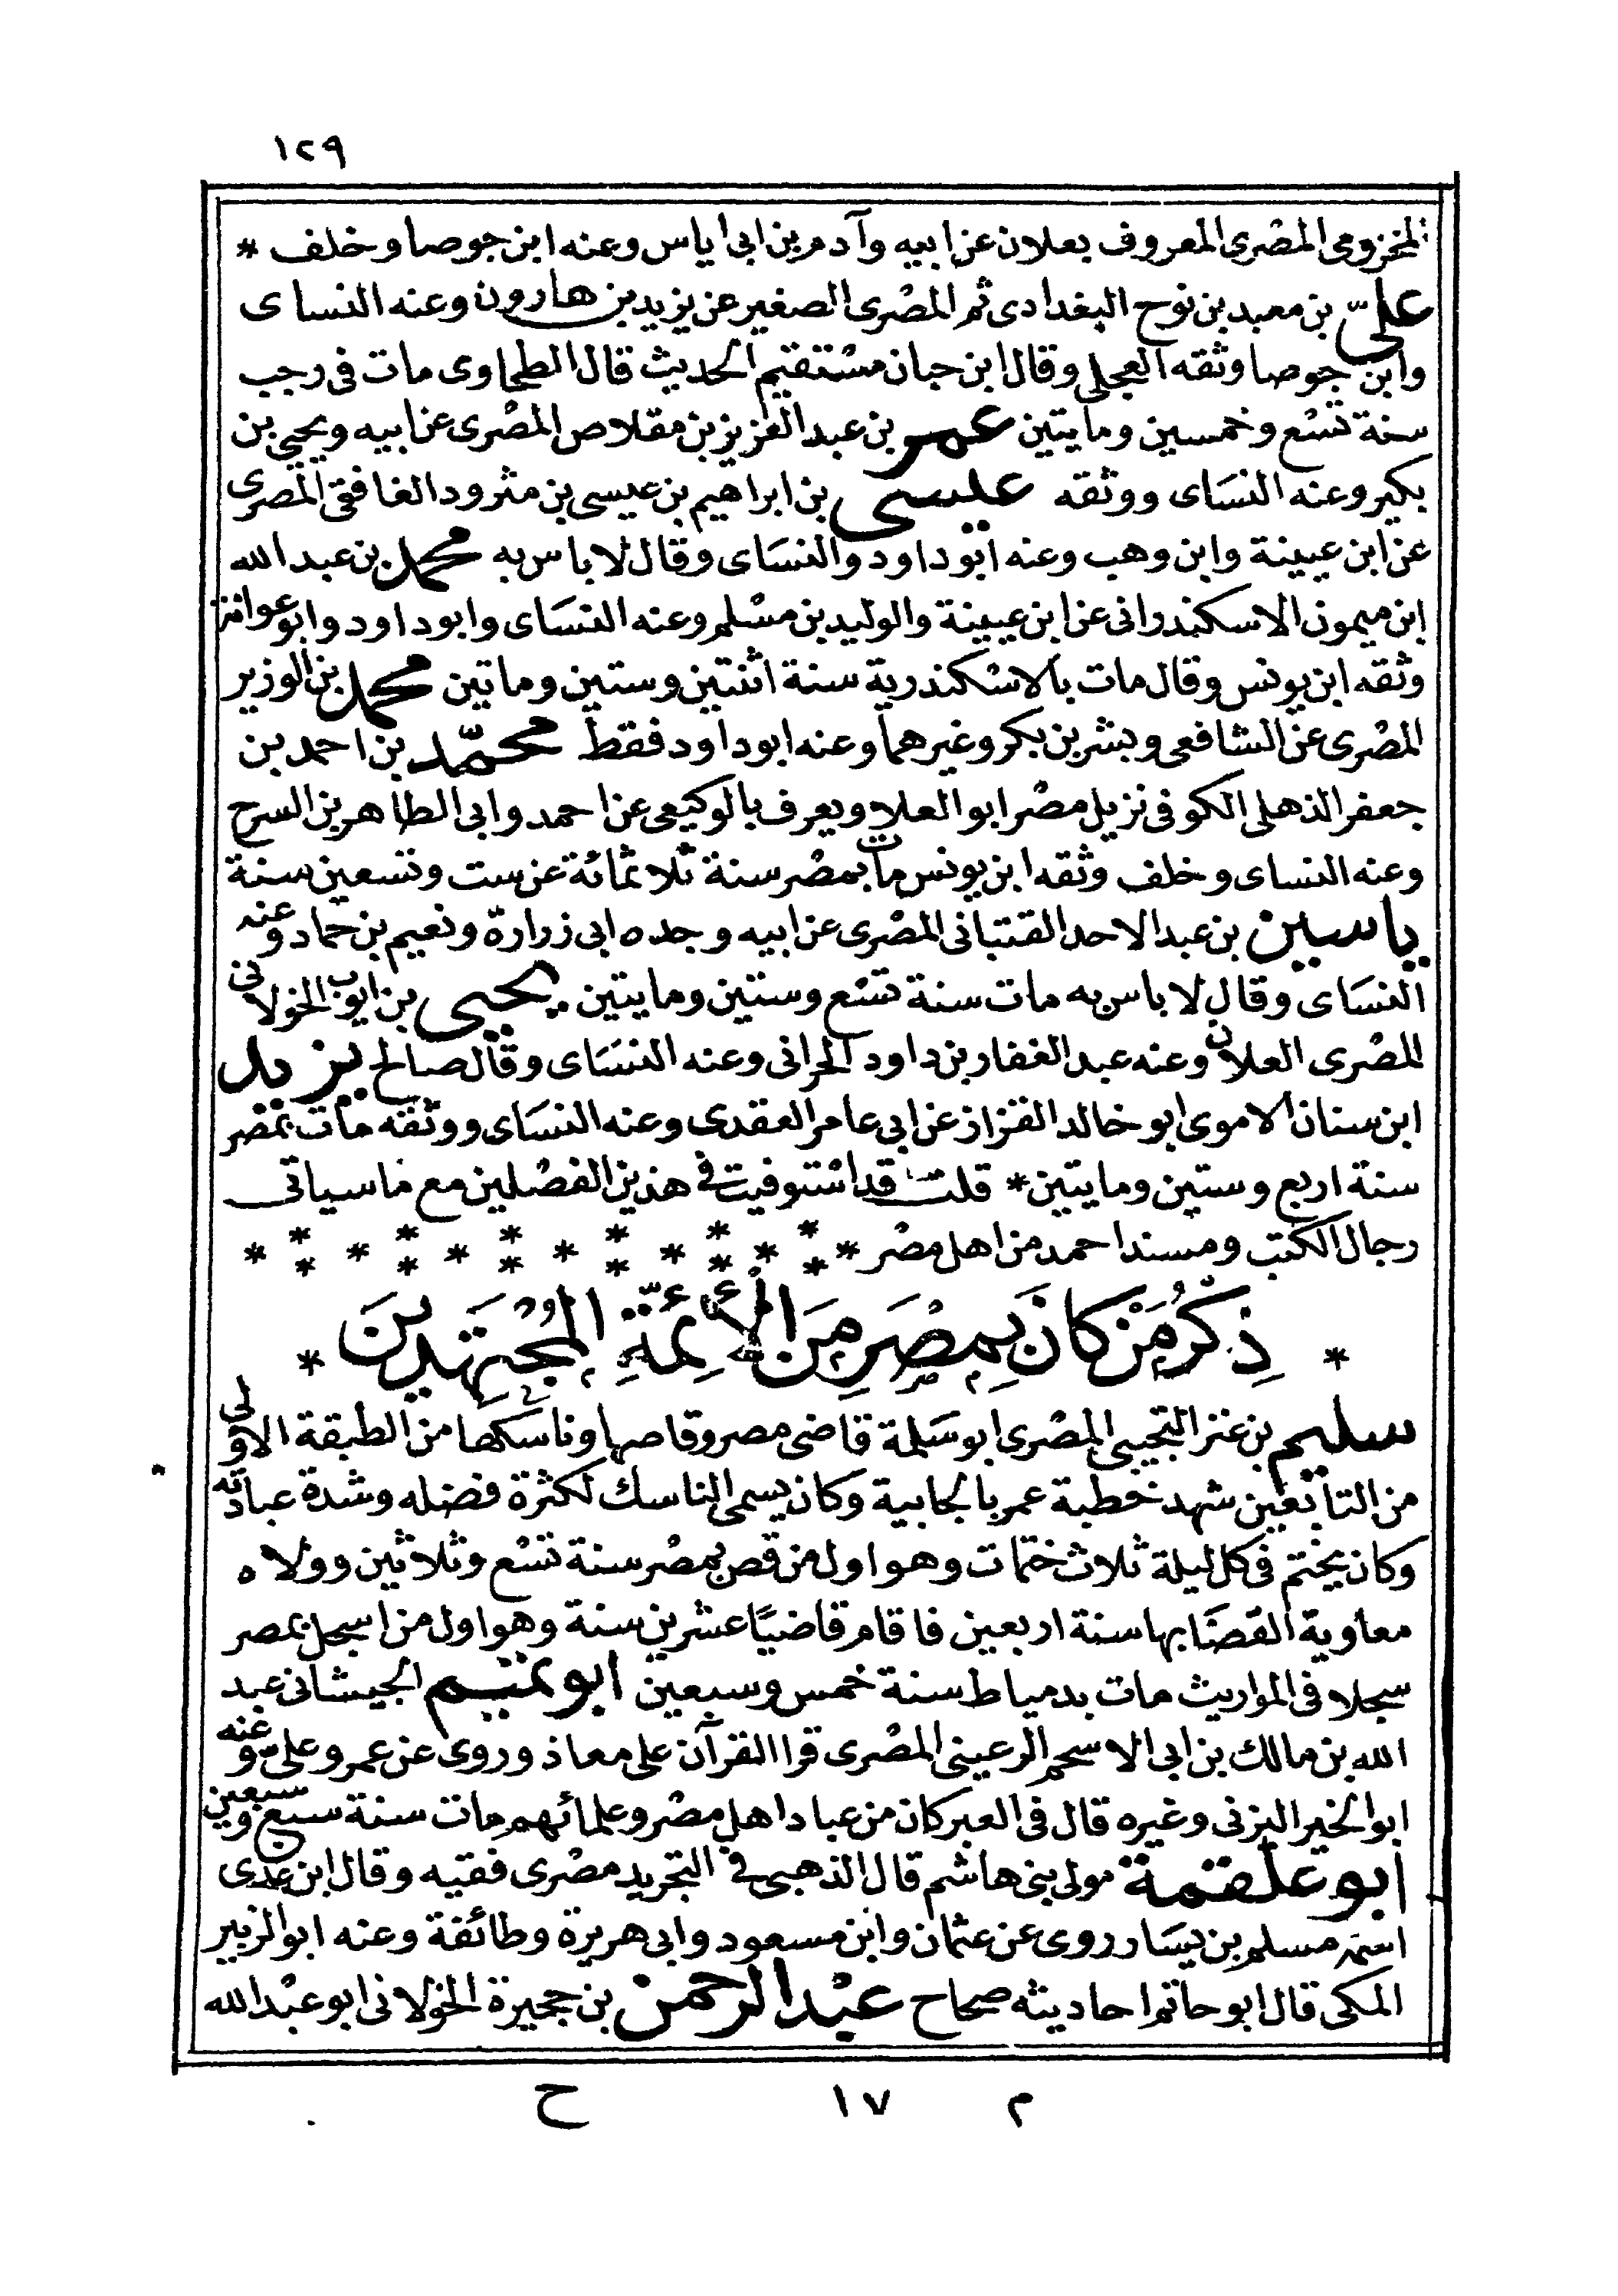 ١٢٩
المخزومى المصرى المعروف بعلان عن ابيه وآدم بن ابى اياس وعنه ابن جوصا وخلف *
علىّ بن معبد بن نوح البغدادى ثم المصرى الصغير عن يزيد بن هارون وعنه النساى
وابن جوصا وثقه العجلى وقال ابن حبان مستقيم الحديث قال الطحاوى مات فى رجب
سنة تسع وخمسين ومايتين عمر بن عبد العزيز بن مقلاص المصرى عن ابيه ويحيى بن
بكير وعنه النساى ووثقه عيسى بن ابراهيم بن عيسى بن مثرود الغافقى المصرى
عن ابن عيينة وابن وهب وعنه ابو داود والنساى وقال لا باس به محمد بن عبد الله
ابن ميمون الاسكندرانى عن ابن عيينة والوليد بن مسلم وعنه النساى وابو داود وابو عوانة
وثقه ابن يونس وقال مات بالاسكندرية سنة اثنتين وستين وماتين محمد بن الوزير
المصرى عن الشافعى وبشر بن بكر وغيرهما وعنه ابو داود فقط محمّد بن احمد بن
جعفر الذهلى الكوفى نزيل مصر ابو العلا ويعرف بالوكيعى عن احمد وابى الطاهر بن السرح
وعنه النساى وخلف وثقه ابن يونس مات بمصر سنة ثلاثمائة عن ست وتسعين سنة
ياسين بن عبد الاحد القتبانى المصرى عن ابيه وجده ابى زرارة ونعيم بن حماد وعنه
النساى وقال لا باس به مات سنة تسع وستين ومايتين يحيى بن ايوب الخولانى
المصرى العلان وعنه عبد الغفار بن داود الحرانى وعنه النساى وقال صالح يزيد
ابن سنان الاموى ابو خالد القزاز عن ابى عامر العقدى وعنه النساى ووثقه مات بمصر
سنة اربع وستين ومايتين * قلت قد استوفيت فى هذين الفصلين مع ما سياتى
رجال الكتب ومسند احمد من اهل مصر * * * * * * * * * * * * * *
* ذِكْرُ مَنْ كَانَ بِمِصْرَ مِنَ الْأَئِمَّةِ الْمُجْتَهِدِينَ *
سليم بن عنز التجيبى المصرى ابو سلمة قاضى مصر وقاصها وناسكها من الطبقة الاولى
من التابعين شهد خطبة عمر بالجابية وكان يسمى الناسك لكثرة فضله وشدة عبادته
وكان يختم فى كل ليلة ثلاث ختمات وهو اول من قص بمصر سنة تسع وثلاثين وولاه
معاوية القضا بها سنة اربعين فاقام قاضيًا عشرين سنة وهو اول من اسجل بمصر
سجلا فى المواريث مات بدمياط سنة خمس وسبعين ابو تميم الجيشانى عبد
الله بن مالك بن ابى الاسحم الرعينى المصرى قرا القرآن على معاذ وروى عن عمر وعلىّ وعنه
ابو الخير اليزنى وغيره قال فى العبر كان من عباد اهل مصر وعلمائهم مات سنة سبع وسبعين
ابو علقمة مولى بنى هاشم قال الذهبى فى التجريد مصرى فقيه وقال ابن عدى
اسمه مسلم بن يسار روى عن عثمان وابن مسعود وابى هريرة وطائفة وعنه ابو الزبير
المكى قال ابو حاتم احاديثه صحاح عبد الرحمن بن حجيرة الخولانى ابو عبد الله
م ١٧ ح